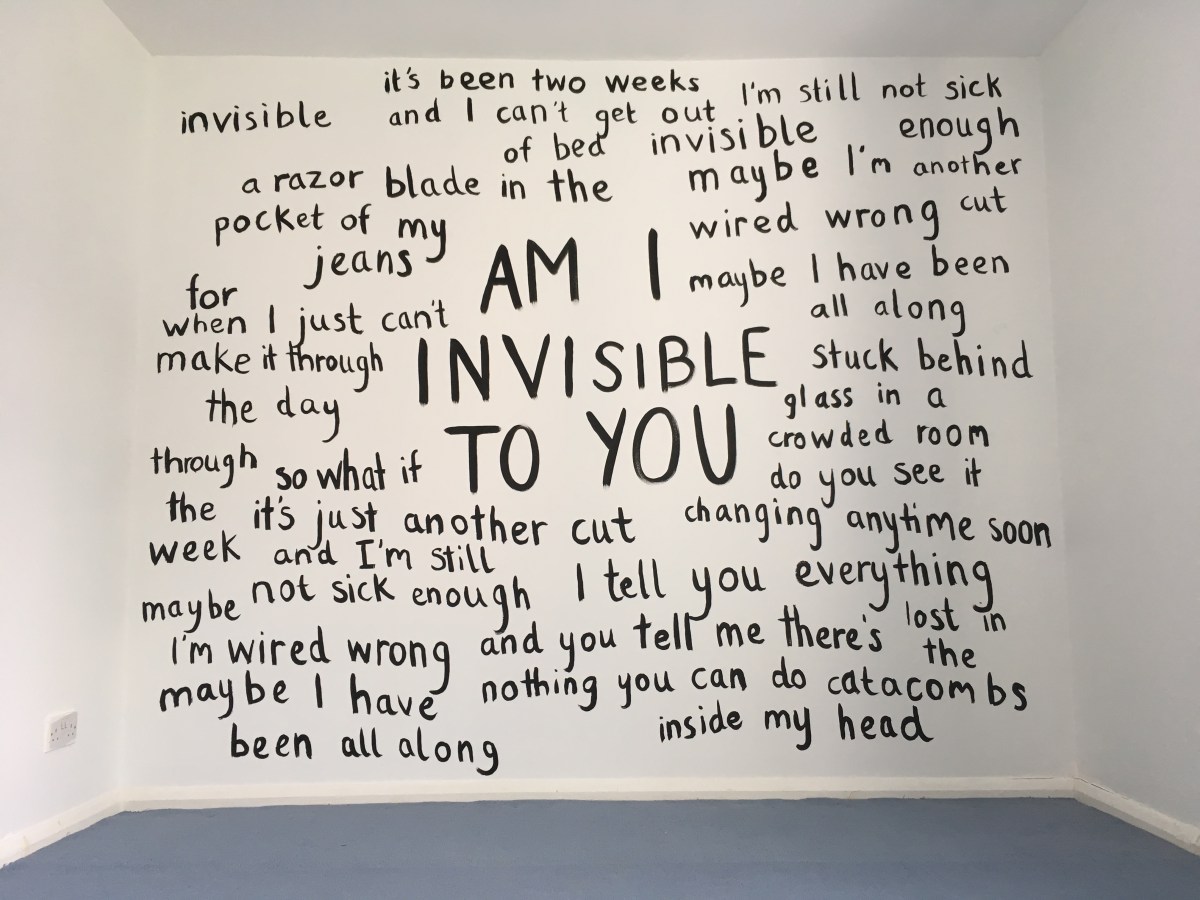 it's been two weeks
and I can't get out
of bed
invisible
a razor blade in the
pocket of my
jeans
for
when I just can't
make it through
the day
through
the
week
so what if
it's just another cut
and I'm still
not sick enough
maybe
I'm wired wrong
maybe I have
been all along
AM I
INVISIBLE
TO YOU
I'm still not sick
enough
invisible
maybe I'm another
cut
wired wrong
maybe I have been
all along
stuck behind
glass in a
crowded room
do you see it
changing anytime soon
I tell you everything
and you tell me there's
nothing you can do
lost in
the
catacombs
inside my head